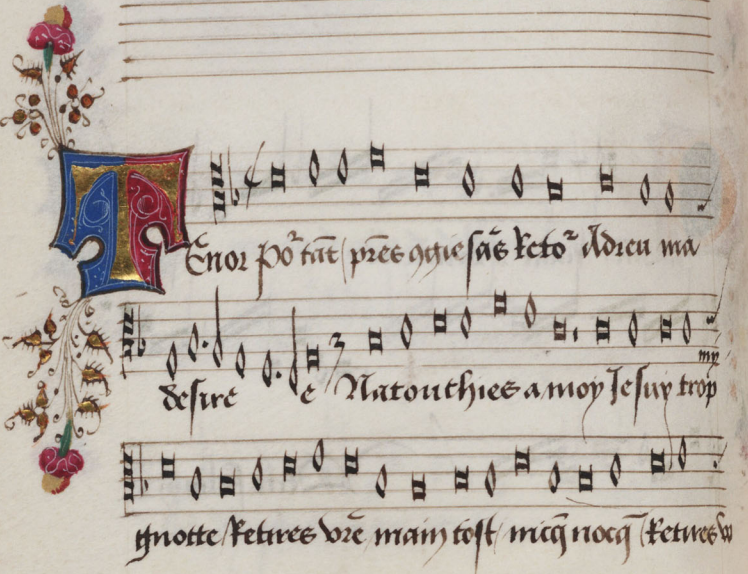 TEnor Po² tāt / prēs ꝯgie sās Reto² Adieu ma
desire e Natouchies a moy Ie suy trop
my
gnotte / Retires vrē main tost / nicq̄ nocq̄ / Retires vo